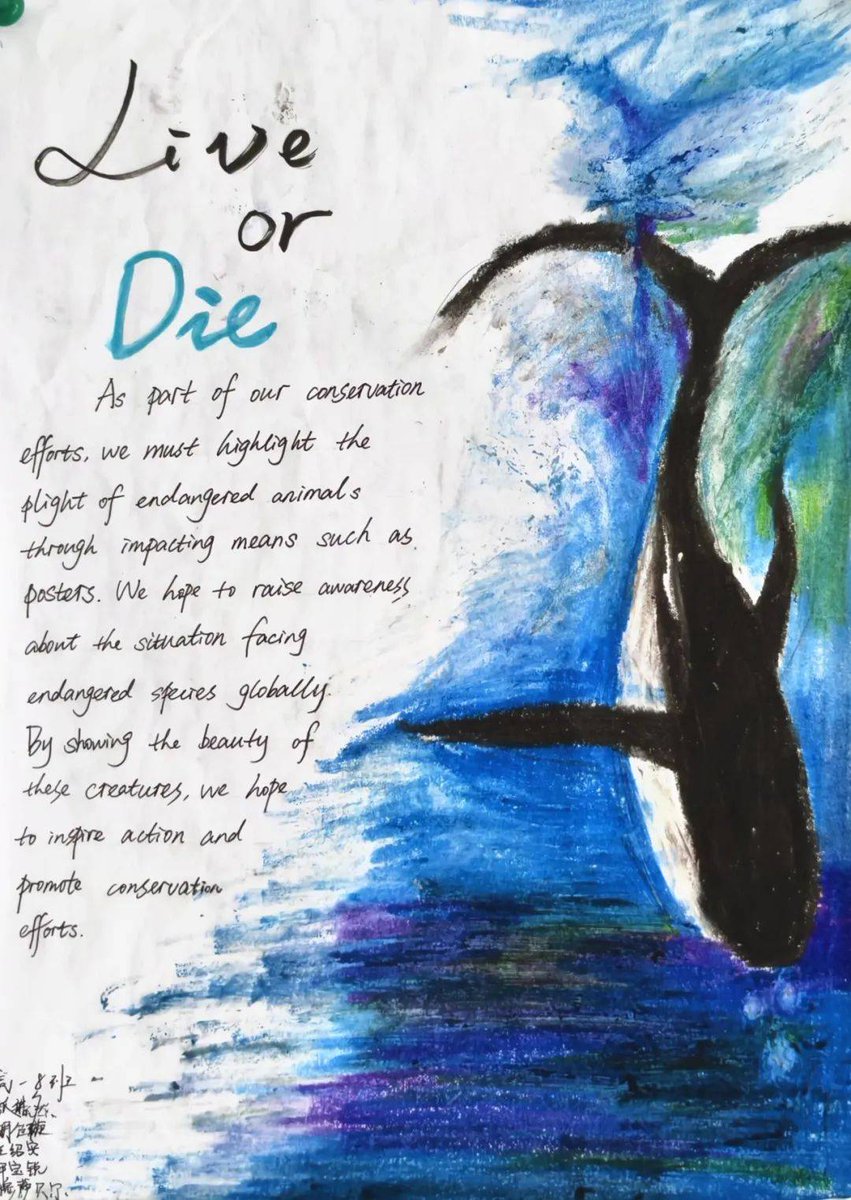 Live
or
Die
As part of our conservation
efforts, we must highlight the
plight of endangered animals
through impacting means such as
posters. We hope to raise awareness
about the situation facing
endangered species globally.
By showing the beauty of
these creatures, we hope
to inspire action and
promote conservation
efforts.
高一8班